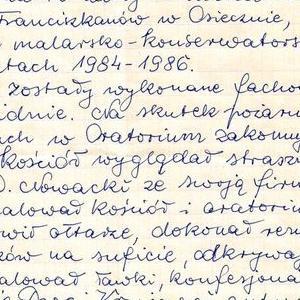 Franciszkanów w Osiecznie,
malarsko-konserwators
tach 1984-1986.
zostały wykonane fachow
idnie. Na skutek pożaru
ch w Oratorium zakonny
kościół wyglądał strasz
O. Nowacki ze swoją firm
alował kościół i oratorium
wił ołtarze, dokonał res
ów na suficie, odkrywa
alował ławki, konfesjona